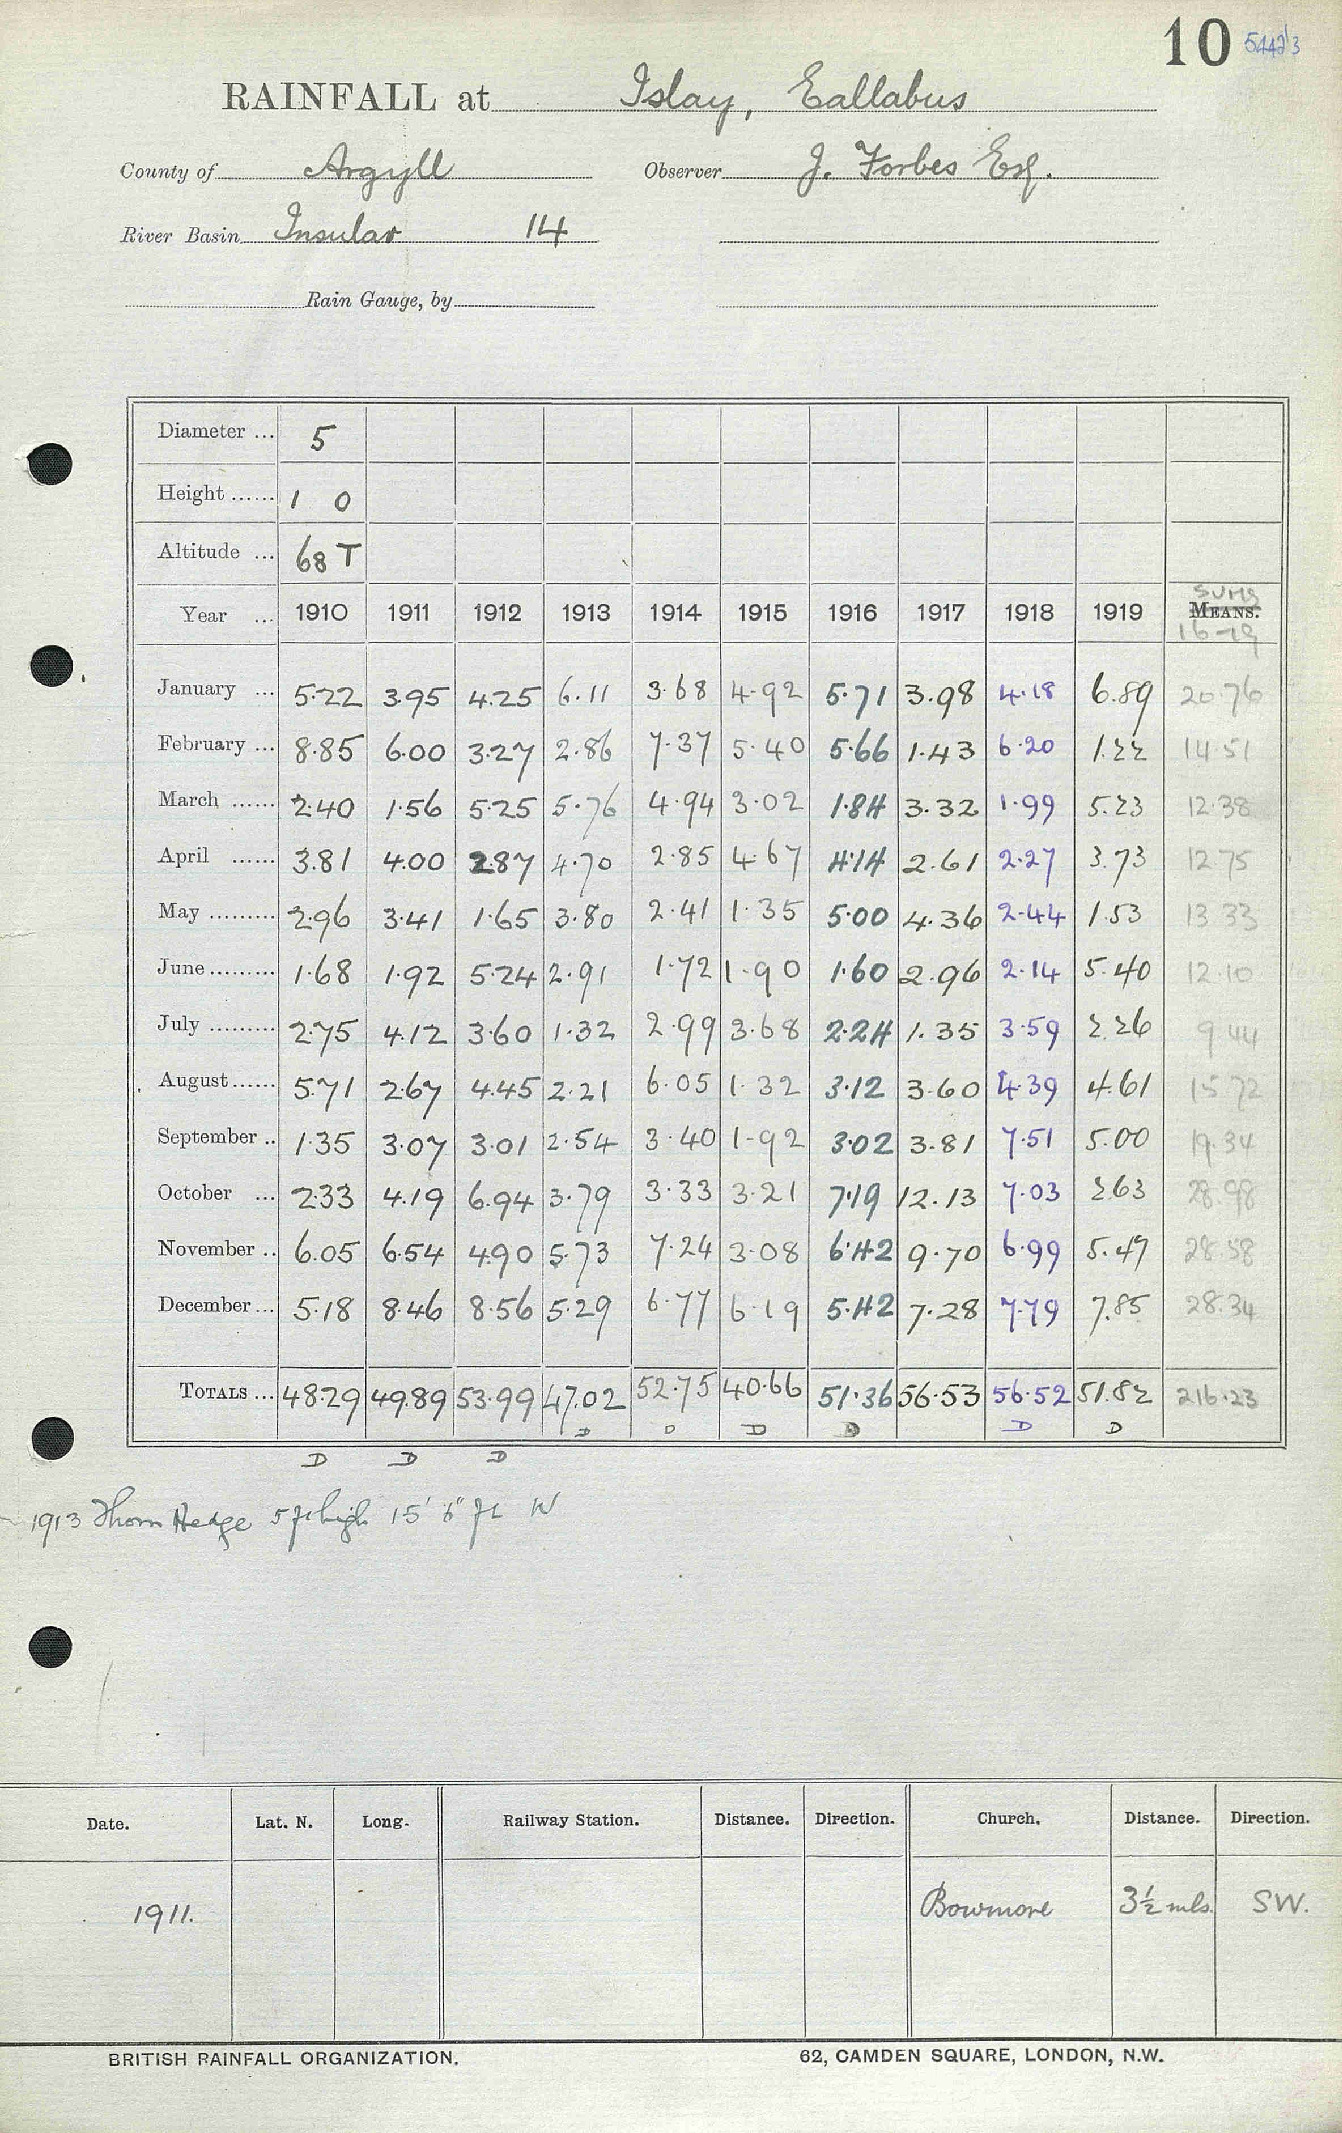 10 5442/3
RAINFALL at Islay, Eallabus
County of Argyll Observer J. Forbes Esq.
River Basin Insular 14
Rain Gauge, by
Diameter ... 5
Height ...... 1 0
Altitude ... 68 T
SUMS
Year ... 1910 1911 1912 1913 1914 1915 1916 1917 1918 1919 MEANS.
16-19
January ... 5.22 3.95 4.25 6.11 3.68 4.92 5.71 3.98 4.18 6.89 20.76
February ... 8.85 6.00 3.27 2.86 7.37 5.40 5.66 1.43 6.20 1.22 14.51
March ...... 2.40 1.56 5.25 5.76 4.94 3.02 1.84 3.32 1.99 5.23 12.38
April ...... 3.81 4.00 2.87 4.70 2.85 4.67 4.14 2.61 2.27 3.73 12.75
May ......... 2.96 3.41 1.65 3.80 2.41 1.35 5.00 4.36 2.44 1.53 13.33
June ......... 1.68 1.92 5.24 2.91 1.72 1.90 1.60 2.96 2.14 5.40 12.10
July ......... 2.75 4.12 3.60 1.32 2.99 3.68 2.24 1.35 3.59 2.26 9.44
August ...... 5.71 2.67 4.45 2.21 6.05 1.32 3.12 3.60 4.39 4.61 15.72
September .. 1.35 3.07 3.01 2.54 3.40 1.92 3.02 3.81 7.51 5.00 19.34
October ... 2.33 4.19 6.94 3.79 3.33 3.21 7.19 12.13 7.03 2.63 28.98
November .. 6.05 6.54 4.90 5.73 7.24 3.08 6.42 9.70 6.99 5.47 28.58
December ... 5.18 8.46 8.56 5.29 6.77 6.19 5.42 7.28 7.79 7.85 28.34
TOTALS ... 48.29 49.89 53.99 47.02 52.75 40.66 51.36 56.53 56.52 51.82 216.23
D D D D D D
D D D
1913 Thorn Hedge 5 ft high 15' 6" ft W
Date. Lat. N. Long. Railway Station. Distance. Direction. Church. Distance. Direction.
1911. Bowmore 3½ mls. SW.
BRITISH RAINFALL ORGANIZATION. 62, CAMDEN SQUARE, LONDON, N.W.